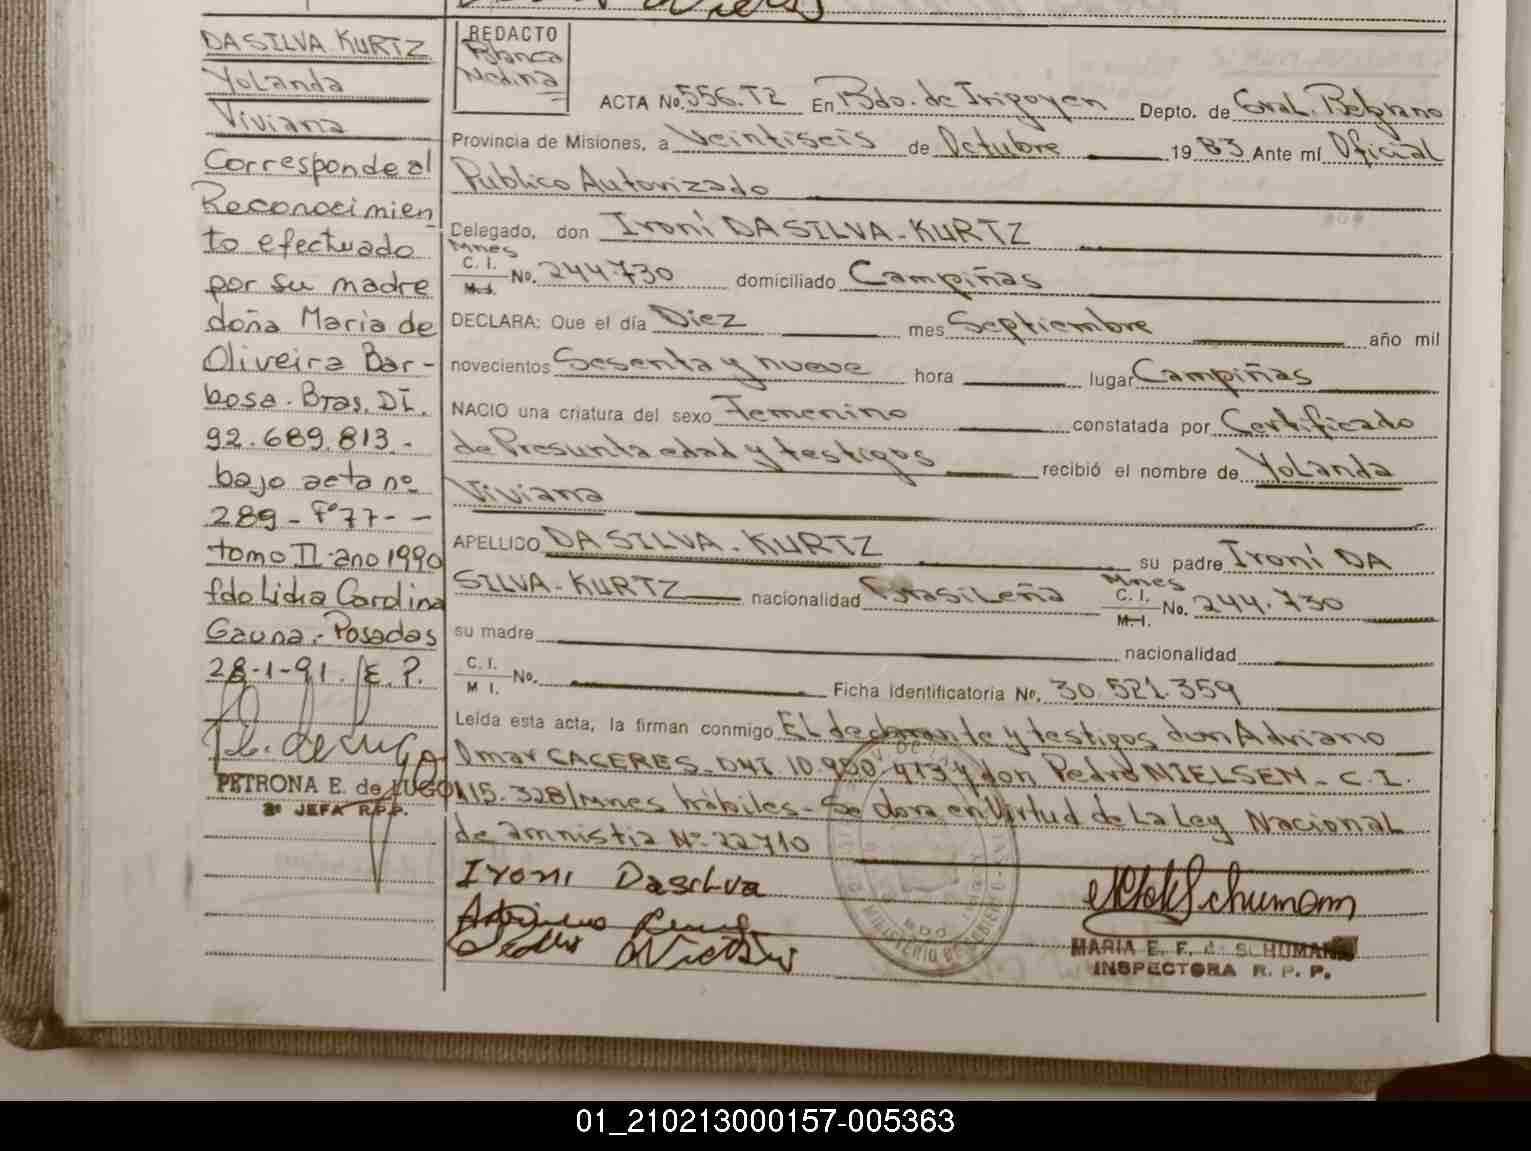 DA SILVA KURTZ
Yolanda
Viviana
Corresponde al
Reconocimien
to efectuado
por su madre
doña Maria de
Oliveira Bar-
bosa. Bras. DI.
92.689.813.-
bajo acta nº
289 - Fº 77 - -
tomo II año 1990
fdo Lidia Cardina
Gauna.- Posadas
28-1-91. E.P.
PETRONA E. de LUGO
2º JEFA R.P.P.
REDACTO
Blanca
Medina
ACTA No. 556.T2 En Bdo. de Irigoyen Depto. de Gral. Belgrano
Provincia de Misiones, a Veintiseis de Octubre 19 83 Ante mí Oficial
Publico Autorizado
Delegado, don Ironí DA SILVA-KURTZ
Mnes
C. I.
M. I. No. 244.730 domiciliado Campiñas
DECLARA: Que el día Diez mes Septiembre año mil
novecientos Sesenta y nueve hora lugar Campiñas
NACIO una criatura del sexo Femenino constatada por Certificado
de Presunta edad y testigos recibió el nombre de Yolanda
Viviana
APELLIDO DA SILVA-KURTZ su padre Ironí DA
SILVA-KURTZ nacionalidad Brasileña Mnes C. I. M. I. No. 244.730
su madre nacionalidad
C. I.
M I. No. Ficha Identificatoria No. 30.521.359
Leída esta acta, la firman conmigo El declarante y testigos don Adriano
Omar CACERES-DNI 10.900.413 y don Pedro NIELSEN- C.I.
115.328/Mnes hábiles- Se dora en Virtud de La Ley Nacional
de amnistia Nº 22710
Ironi Dasilva
MARIA E. F. de SCHUMANN
INSPECTORA R. P. P.
01_210213000157-005363